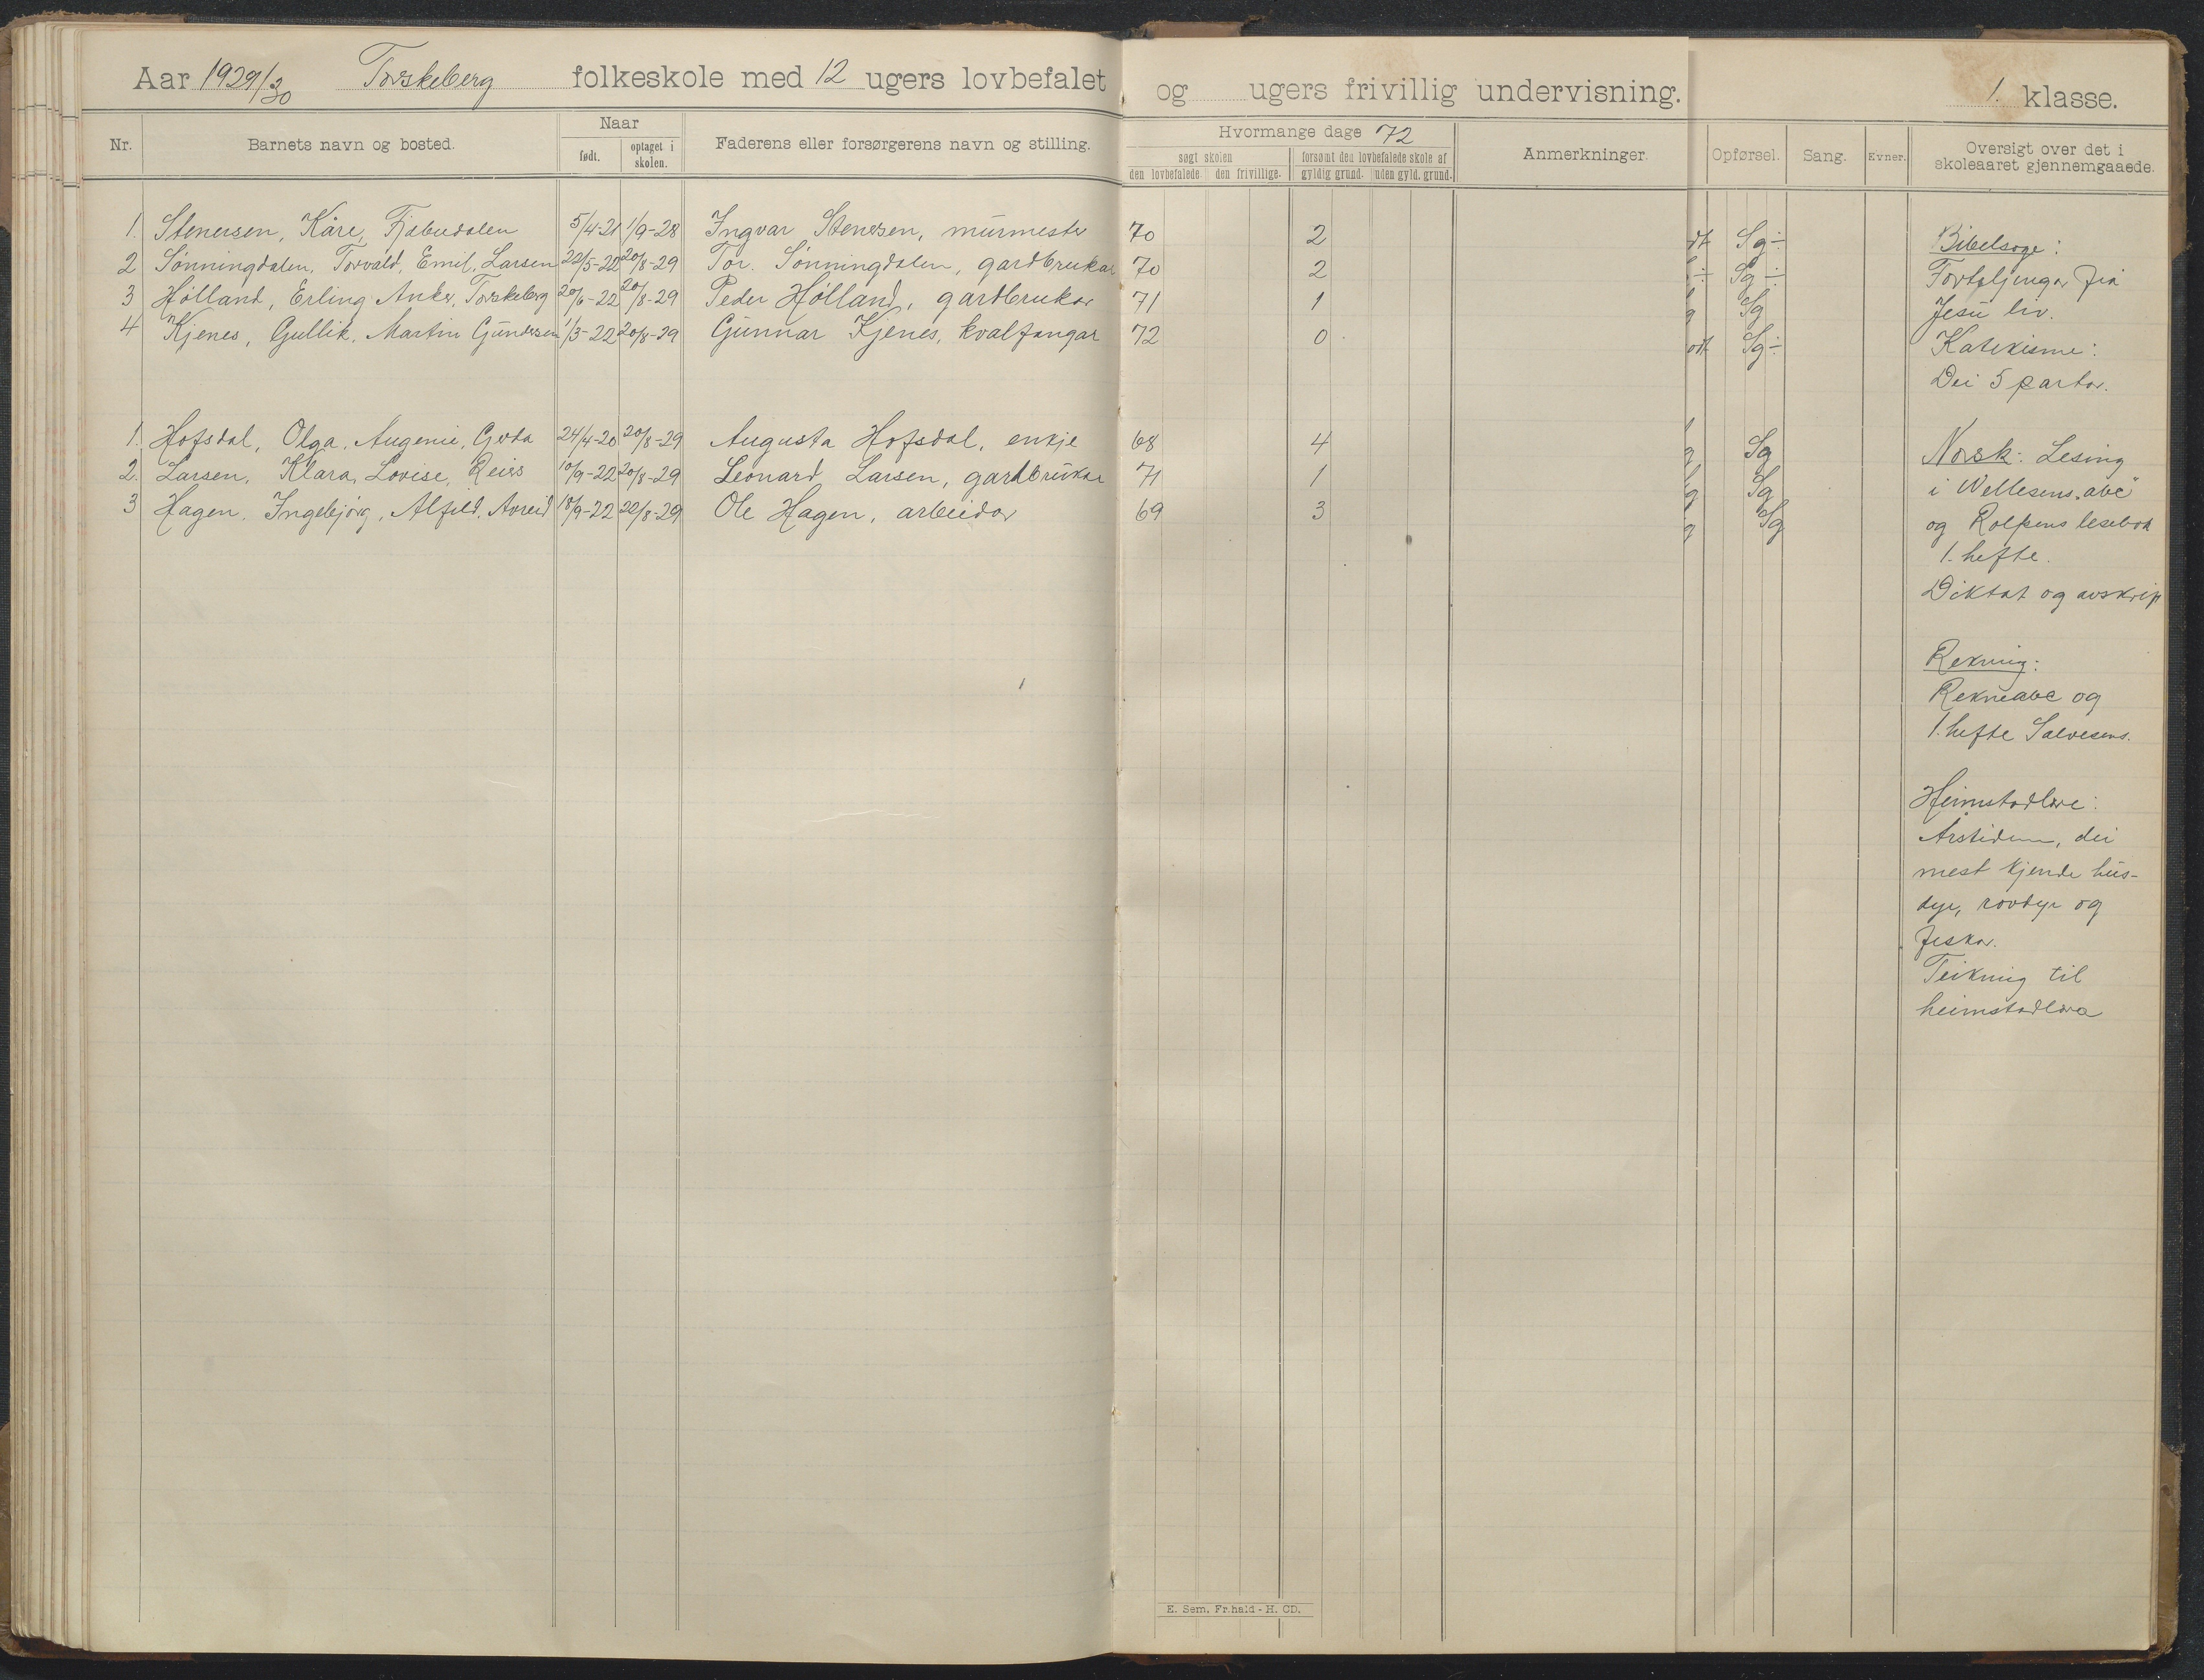 Aar 1929/30 Torskeberg folkeskole med 12 ugers lovbefalet og ugers frivillig undervisning. 1. klasse.
Nr. Barnets navn og bosted. Naar født. optaget i skolen. Faderens eller forsørgerens navn og stilling. Hvormange dage 72 søgt skolen den lovbefalede. den frivillige. forsømt den lovbefalede skole af gyldig grund. uden gyld. grund. Anmerkninger. Opførsel. Sang. Evner. Oversigt over det i skoleaaret gjennemgaaede.
1. Stenersen, Kåre, 5/4-21 1/9-28 Ingvar Stenersen, murmester 70 2 Sg÷
2 Sønningdalen, Torvald, Emil, Larsen 22/5-22 20/8-29 Tor. Sønningdalen, gardbrukar 70 2 Sg÷
3 Hølland, Erling Anker, Torskeberg 20/6-22 20/8-29 Peder Hølland, gardbrukar 71 1 Sg
4 Kjenes, Gullik, Martin Gundersen 1/3-22 20/8-29 Gunnar Kjenes, kvalfangar 72 0 Sg÷
1. Hofsdal, Olga, Augenie, Gerda 24/4-20 20/8-29 Augusta Hofsdal, enkje 68 4 Sg
2. Larsen, Klara, Lovise, 10/9-22 20/8-29 Leonard Larsen, gardbrukar 71 1 Sg
3 Hagen, Ingebjørg, Alfild, 18/9-22 22/8-29 Ole Hagen, arbeidar 69 3 Sg
Bibelsoge:
Forteljingar frå
Jesu liv.
Katekisme:
Dei 5 partar.
Norsk: Lesing
i Wellesens "abc"
og Rolfsens lesebok
1. hefte.
Diktat og avskrift
Rekning:
Rekneabc og
1. hefte Salvesens.
Heimstadlære:
Årstidene, dei
mest kjende hus-
dyr, rovdyr og
fiskar.
Teikning til
heimstadlæra
E. Sem, Fr.hald - H. CD.